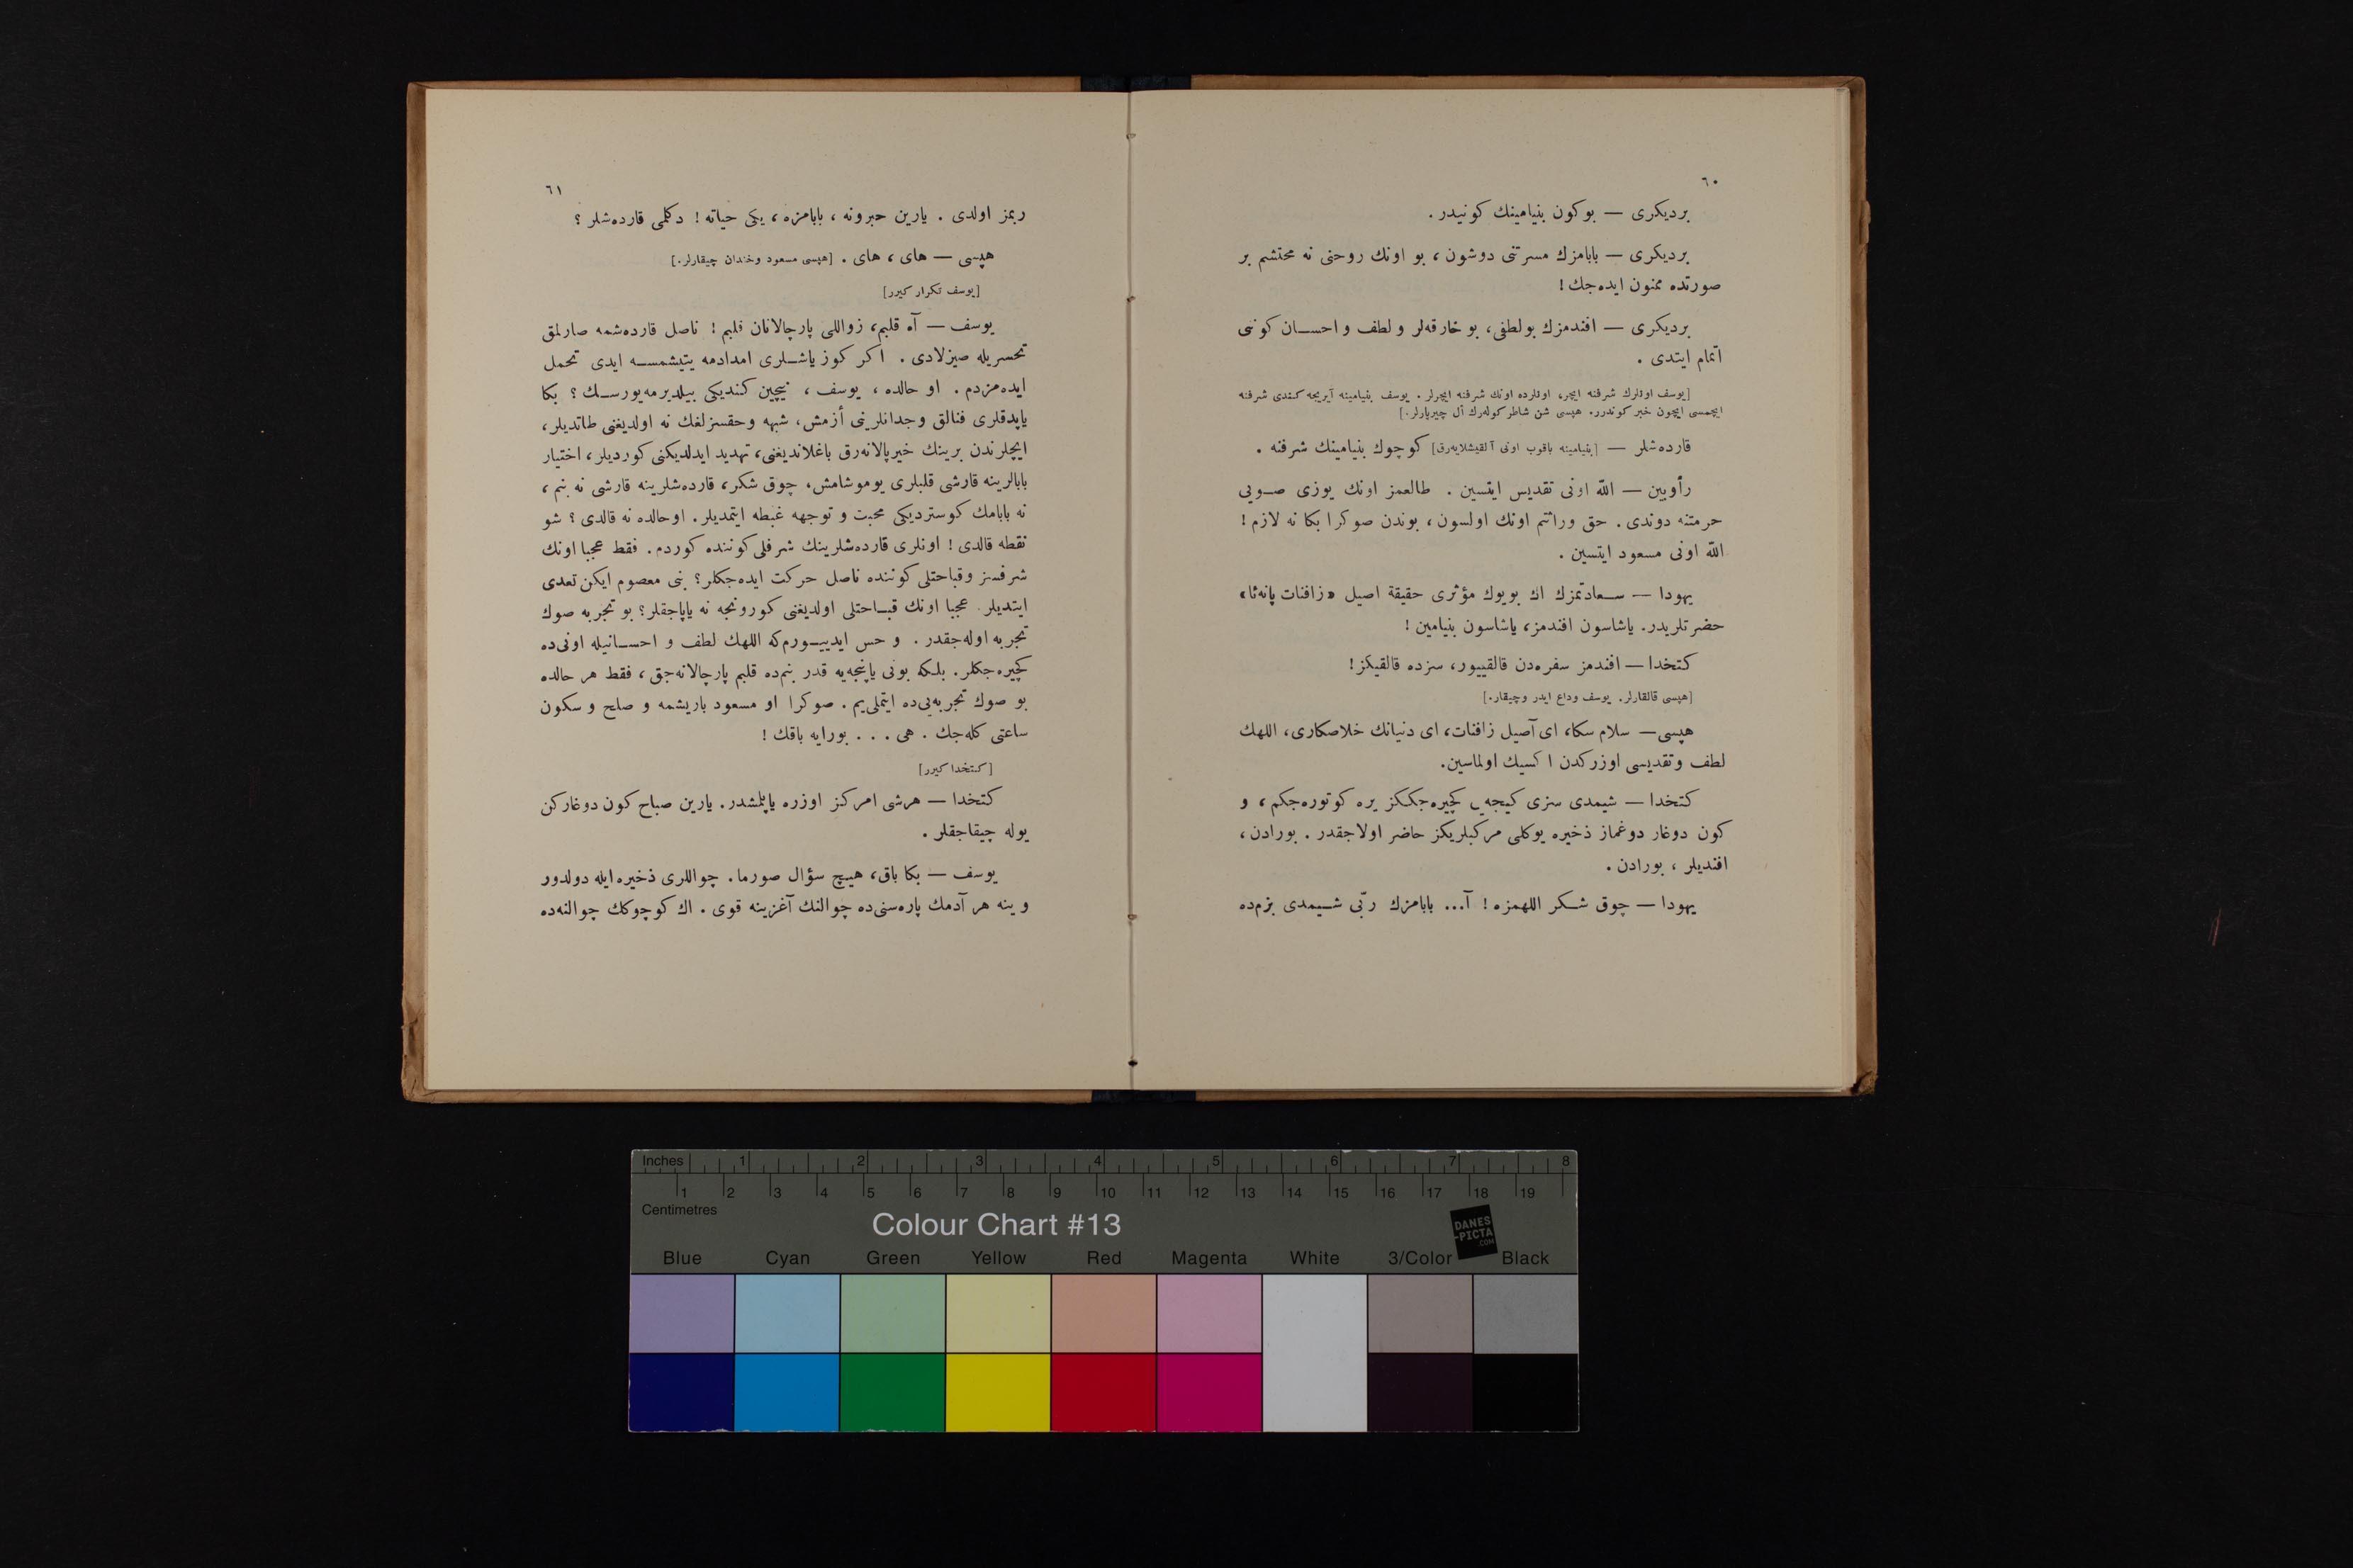 ٦٠
برديكرى — بوكون بنيامينك كونيدر .
برديكرى — بابامزك مسرتنى دوشون ، بو اونك روحنى نه محتشم بر
صورتده ممنون ايده‌جك !
برديكرى — افندمزك بولطفى، بو خارقه‌لر ولطف واحسان كوننى
اتمام ايتدى .
[يوسف اونلرك شرفنه ايچر، اونلرده اونك شرفنه ايچرلر . يوسف بنيامينه آيريجه كندى شرفنه
ايچمسى ايچون خبر كوندرر. هپسى شن شاطر كوله‌رك آل چيرپارلر.]
قارده‌شلر — [بنيامينه باقوب اونى آلقيشلايه‌رق] كوچوك بنيامينك شرفنه .
رأوبين — الله اونى تقديس ايتسين . طالعمز اونك يوزى صويى
حرمتنه دوندى . حق وراثتم اونك اولسون ، بوندن صوكرا بكا نه لازم !
الله اونى مسعود ايتسين .
يهودا — سعادتمزك اك بويوك مؤثرى حقيقة اصيل «زافنات پانه‌ئا»
حضرتلريدر. ياشاسون افندمز، ياشاسون بنيامين !
كتخدا — افندمز سفره‌دن قالقييور، سزده قالقيكز !
[هپسى قالقارلر. يوسف وداع ايدر وچيقار.]
هپسى — سلام سكا، اى آصيل زافنات، اى دنيانك خلاصكارى، اللهك
لطف وتقديسى اوزركدن اكسيك اولماسين.
كتخدا — شيمدى سزى كيجه‌يى كچيره‌جككز يره كوتوره‌جكم ، و
كون دوغار دوغماز ذخيره يوكلى مركبلريكز حاضر اولاجقدر . بورادن ،
افنديلر ، بورادن .
يهودا — چوق شكر اللهمزه ! آ... بابامزك ربّى شيمدى بزم‌ده
٦١
ربمز اولدى . يارين حبرونه ، بابامزه ، يكى حياته ! دكلمى قارده‌شلر ؟
هپسى — هاى ، هاى . [هپسى مسعود وخندان چيقارلر.]
[يوسف تكرار كيرر]
يوسف — آه قلبم، زواللى پارچالانان قلبم ! ناصل قارده‌شمه صارلمق
تحسريله صيزلادى . اكر كوز ياشلرى امدادمه يتيشمسه ايدى تحمل
ايده‌مزدم . او حالده ، يوسف ، نيچين كنديكى بيلديرمه‌يورسك ؟ بكا
ياپدقلرى فنالق وجدانلرينى أزمش، شبهه وحقسزلغك نه اولديغنى طاتديلر،
ايچلرندن برينك خيرپالانه‌رق باغلانديغنى، تهديد ايدلديكنى كورديلر، اختيار
بابالرينه قارشى قلبلرى يوموشامش، چوق شكر، قارده‌شلرينه قارشى نه بنم ،
نه بابامك كوسترديكى محبت و توجهه غبطه ايتمديلر . اوحالده نه قالدى ؟ شو
نقطه قالدى ! اونلرى قارده‌شلرينك شرفلى كوننده كوردم. فقط عجبا اونك
شرفسز وقباحتلى كوننده ناصل حركت ايده‌جكلر؟ بنى معصوم ايكن تعدى
ايتديلر. عجبا اونك قباحتلى اولديغنى كورونجه نه ياپاجقلر؟ بو تجربه صوك
تجربه اوله‌جقدر . و حس ايدييورم‌كه اللهك لطف و احسانيله اونى‌ده
كچيره‌جكلر . بلكه بونى ياپنجه‌يه قدر بنم‌ده قلبم پارچالانه‌جق ، فقط هر حالده
بو صوك تجربه‌يى‌ده ايتملى‌يم . صوكرا او مسعود باريشمه و صلح و سكون
ساعتى كله‌جك . هى . . . بورايه باقك !
[كتخدا كيرر]
كتخدا — هرشى امركز اوزره ياپلمشدر. يارين صباح كون دوغاركن
يوله چيقاجقلر .
يوسف — بكا باق، هيچ سؤال صورما. چواللرى ذخيره ايله دولدور
وينه هر آدمك پاره‌سنى‌ده چوالنك آغزينه قوى . اك كوچوكك چوالنه‌ده
Inches 1 2 3 4 5 6 7 8
1 2 3 4 5 6 7 8 9 10 11 12 13 14 15 16 17 18 19
Centimetres
Colour Chart #13
DANES
-PICTA
.COM
Blue Cyan Green Yellow Red Magenta White 3/Color Black